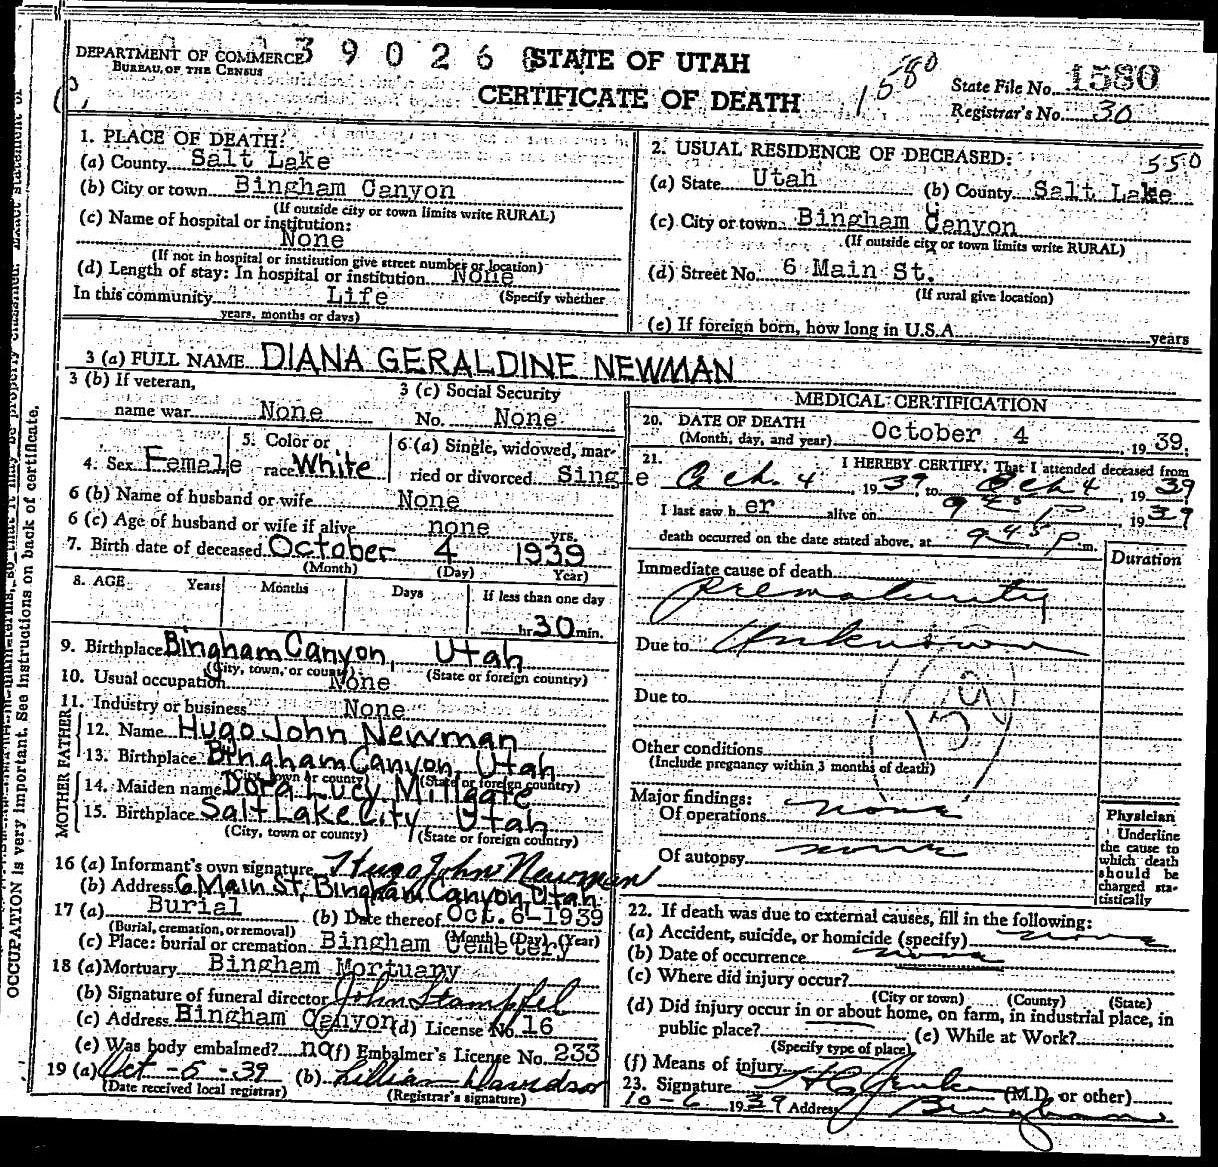 DEPARTMENT OF COMMERCE
BUREAU OF THE CENSUS
390260
STATE OF UTAH
CERTIFICATE OF DEATH
1580
State File No. 1580
Registrar's No. 30
1. PLACE OF DEATH:
(a) County Salt Lake
(b) City or town Bingham Canyon
(If outside city or town limits write RURAL)
(c) Name of hospital or institution:
None
(If not in hospital or institution give street number or location)
(d) Length of stay: In hospital or institution None
In this community Life (Specify whether
years, months or days)
2. USUAL RESIDENCE OF DECEASED: 550
(a) State Utah (b) County Salt Lake
(c) City or town Bingham Canyon
(If outside city or town limits write RURAL)
(d) Street No. 6 Main St.
(If rural give location)
(e) If foreign born, how long in U.S.A. years
3 (a) FULL NAME DIANA GERALDINE NEWMAN
3 (b) If veteran,
name war None
3 (c) Social Security
No. None
4. Sex Female
5. Color or
race White
6 (a) Single, widowed, mar-
ried or divorced Single
6 (b) Name of husband or wife None
6 (c) Age of husband or wife if alive none yrs.
7. Birth date of deceased October 4 1939
(Month) (Day) Year)
8. AGE Years Months Days If less than one day
hr 30 min.
9. Birthplace Bingham Canyon, Utah
(City, town, or county) (State or foreign country)
10. Usual occupation None
11. Industry or business None
FATHER
12. Name Hugo John Newman
13. Birthplace Bingham Canyon, Utah
(City, town or county) (State or foreign country)
MOTHER
14. Maiden name Dora Lucy Millgate
15. Birthplace Salt Lake City, Utah
(City, town or county) (State or foreign country)
16 (a) Informant's own signature Hugo John Newman
(b) Address 6 Main St, Bingham Canyon, Utah
17 (a) Burial (b) Date thereof Oct. 6-1939
(Burial, cremation, or removal) (Month) (Day) (Year)
(c) Place: burial or cremation Bingham Cemetery
18 (a) Mortuary Bingham Mortuary
(b) Signature of funeral director John Stampfel
(c) Address Bingham Canyon (d) License No. 16
(e) Was body embalmed? no (f) Embalmer's License No. 233
19 (a) Oct -5 -39 (b) Lillian Davidson
(Date received local registrar) (Registrar's signature)
MEDICAL CERTIFICATION
20. DATE OF DEATH
(Month, day, and year) October 4 , 1939.
21. I HEREBY CERTIFY, That I attended deceased from
Oct. 4 , 1939, to Oct 4 , 1939
I last saw h er alive on 9 45 P , 1939
death occurred on the date stated above, at 9 45 P m.
Duration
Immediate cause of death
Prematurity
Due to Unknown
159
Due to
Other conditions
(Include pregnancy within 3 months of death)
Major findings:
Of operations none
Of autopsy none
Physician
Underline
the cause to
which death
should be
charged sta-
tistically
22. If death was due to external causes, fill in the following:
(a) Accident, suicide, or homicide (specify) none
(b) Date of occurrence none
(c) Where did injury occur?
(City or town) (County) (State)
(d) Did injury occur in or about home, on farm, in industrial place, in
public place? (e) While at Work?
(Specify type of place)
(f) Means of injury
23. Signature (M.D. or other)
10-6 1939 Address Bingham
OCCUPATION is very important. See instructions on back of certificate.